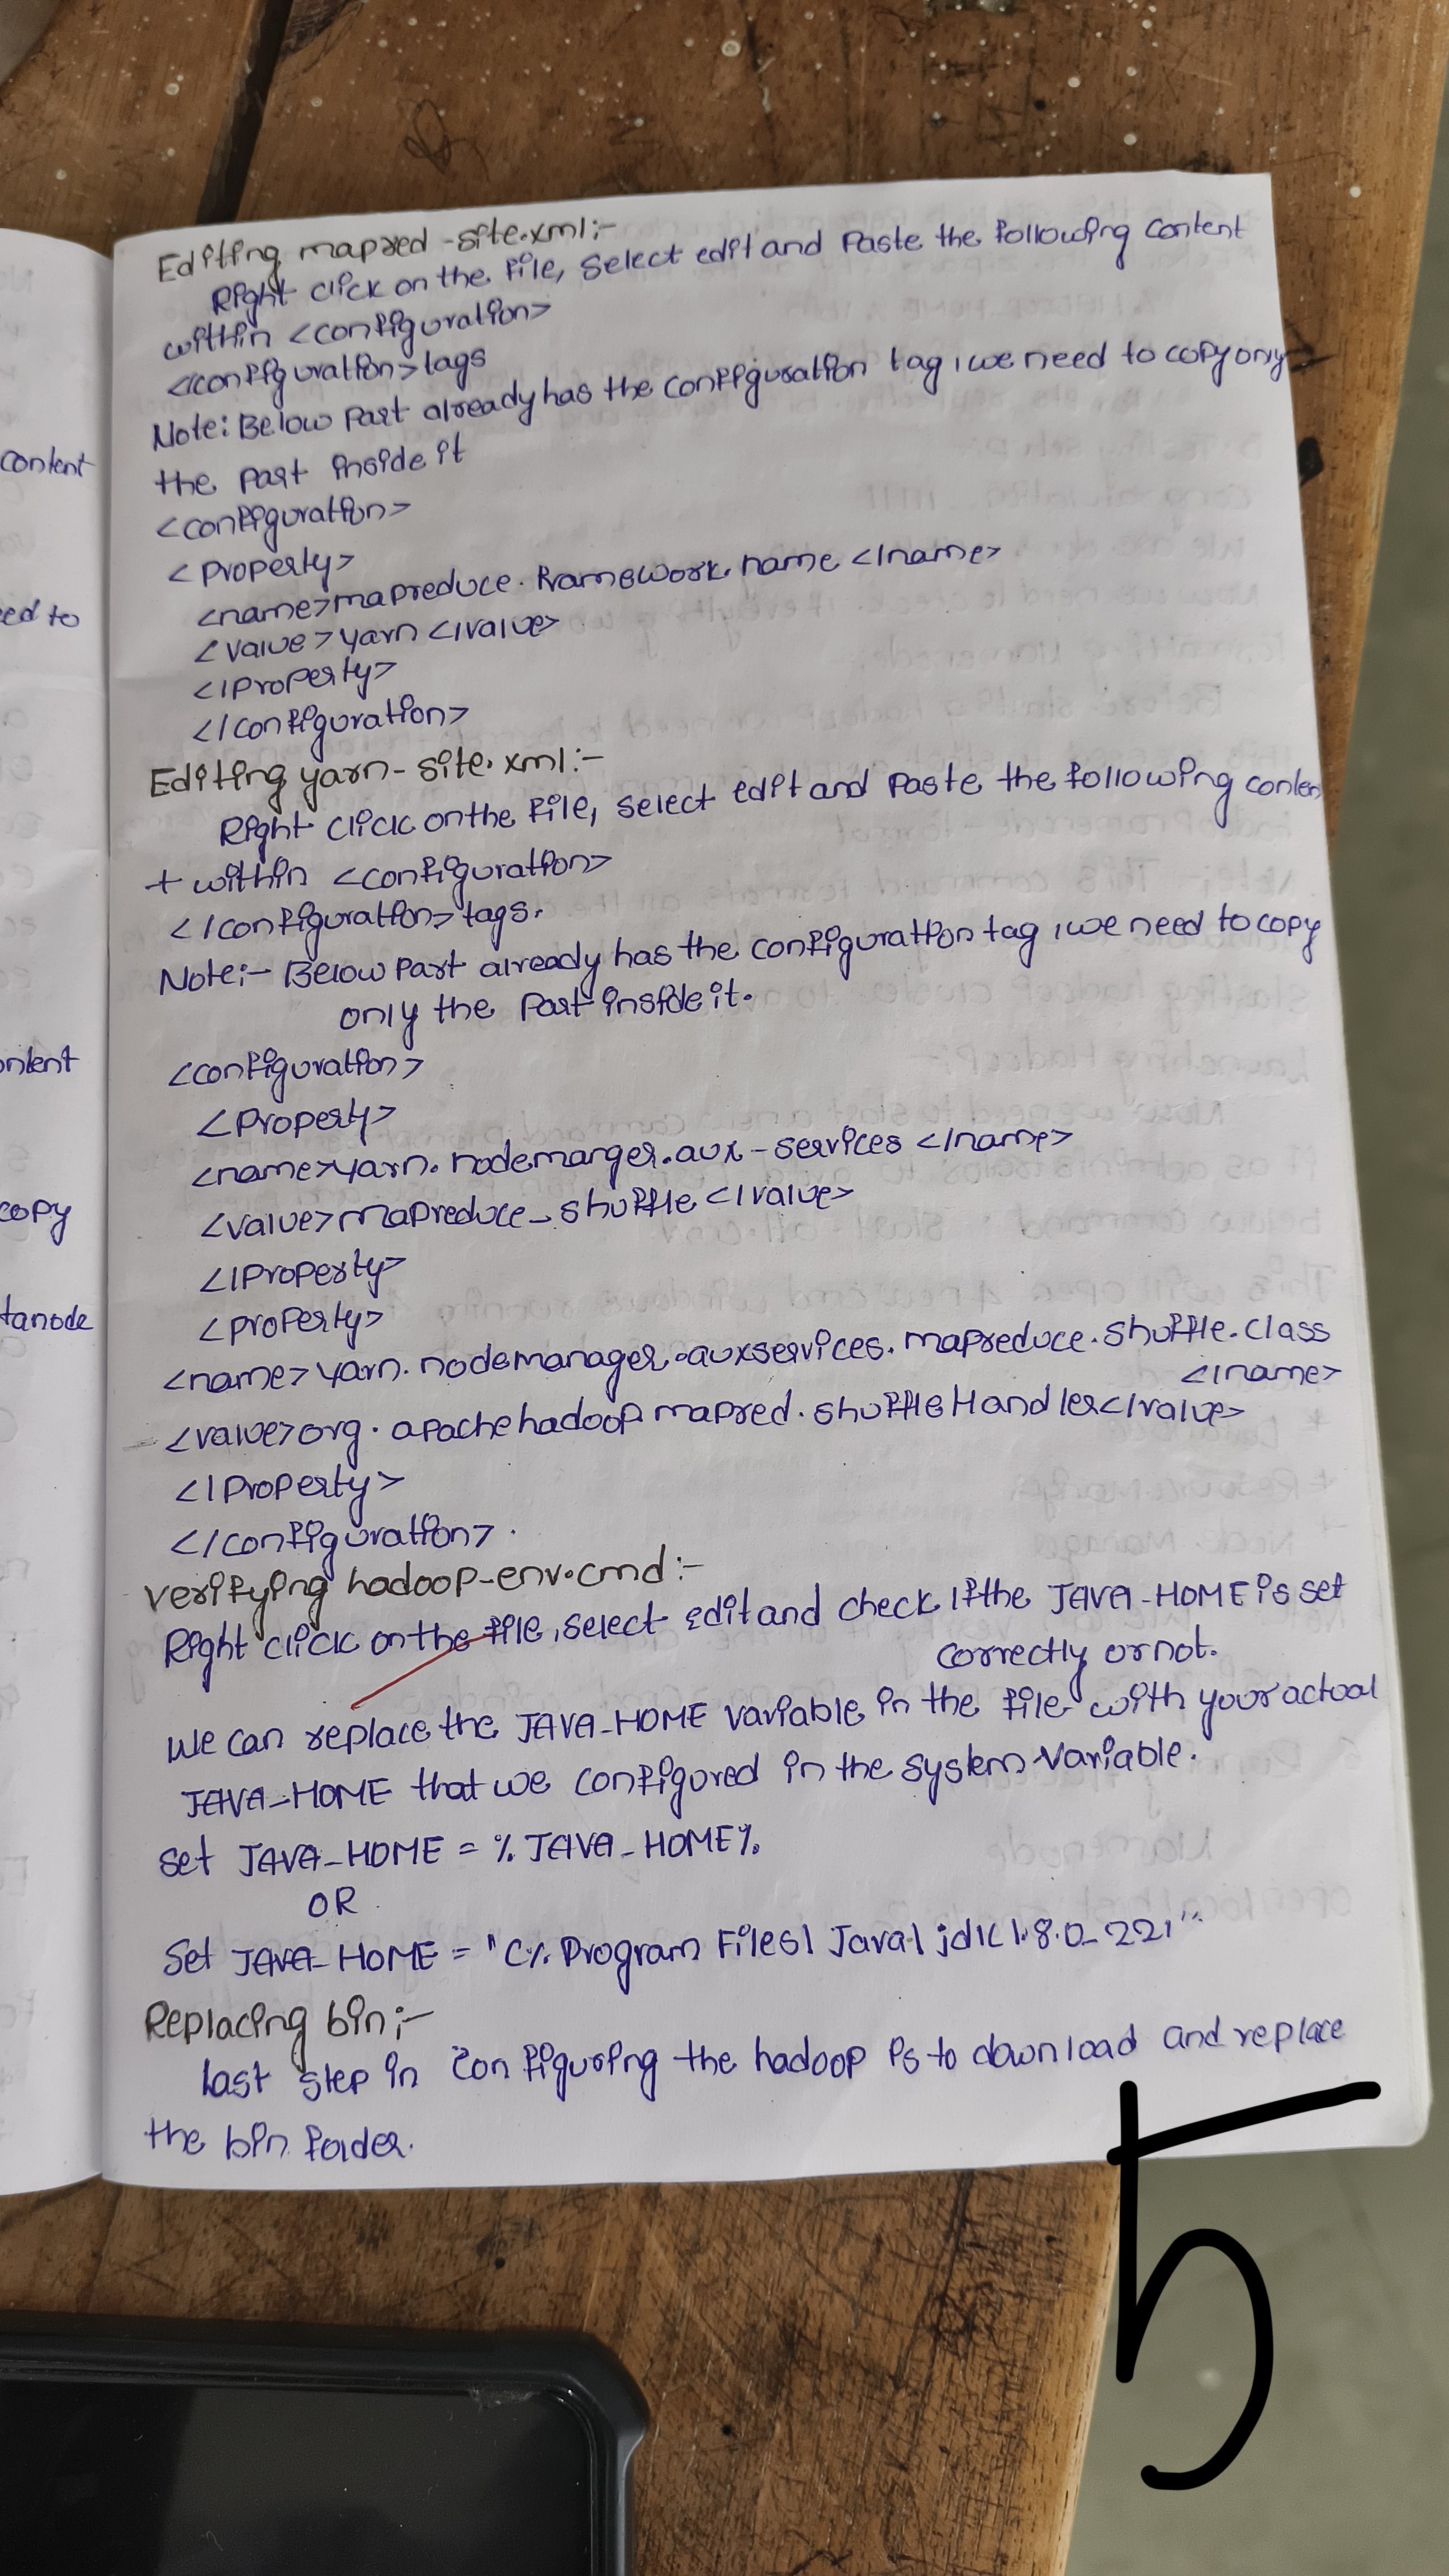 Editing mapred -site.xml:-
Right click on the file, select edit and Paste the following content
within <configuration>
</configuration> tags
Note: Below Part already has the configuration tag, we need to copy only
the part inside it
<configuration>
<Property>
<name>mapreduce. framework. name </name>
<value> yarn </value>
</Property>
</configuration>
Editing yarn- site. xml:-
Right click on the file, select edit and Paste the following conten
t within <configuration>
</configuration> tags.
Note:- Below Part already has the configuration tag, we need to copy
only the Part inside it.
<configuration>
<Property>
<name>yarn. nodemanger.aux-services </name>
<value>mapreduce_shuffle </value>
</Property>
<property>
<name> yarn. nodemanager.auxservices. mapreduce. shuffle. class
</name>
<value>org. apache hadoop mapred. shuffle Handler</value>
</Property>
</configuration>.
verifying hadoop-env.cmd:-
Right click on the file, select edit and check If the JAVA-HOME is set
correctly or not.
We can replace the JAVA_HOME variable in the file with your actual
JAVA_HOME that we configured in the system variable.
set JAVA_HOME = % JAVA_HOME%
OR
Set JAVA_HOME = "C% Program Files\ Java\ jdk 1.8.0_221"
Replacing bin:-
last step in configuring the hadoop is to download and replace
the bin folder.
content
ed to
ontent
copy
tanode
5